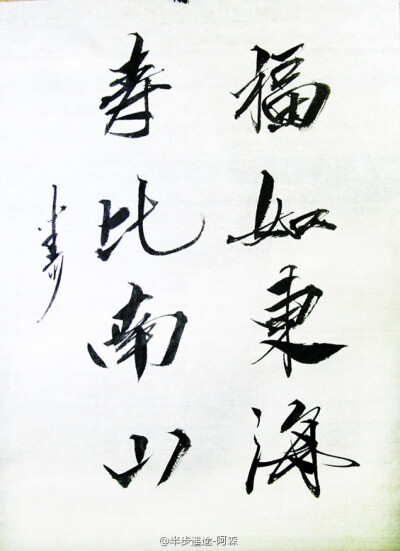 福如東海
寿比南山
@半步遥途-阿森